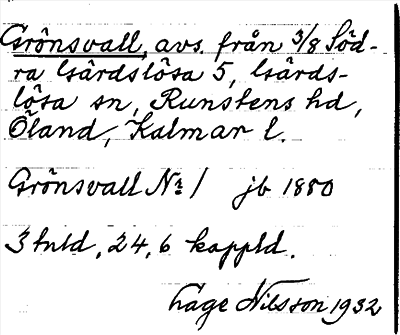 Grönsvall, avs. från 3/8 Söd-
ra Gärdslösa 5, Gärds-
lösa sn, Runstens hd,
Öland, Kalmar l.
Grönsvall No 1 jb 1880
3 tnld, 24,6 kappld.
Hage Nilsson 1932